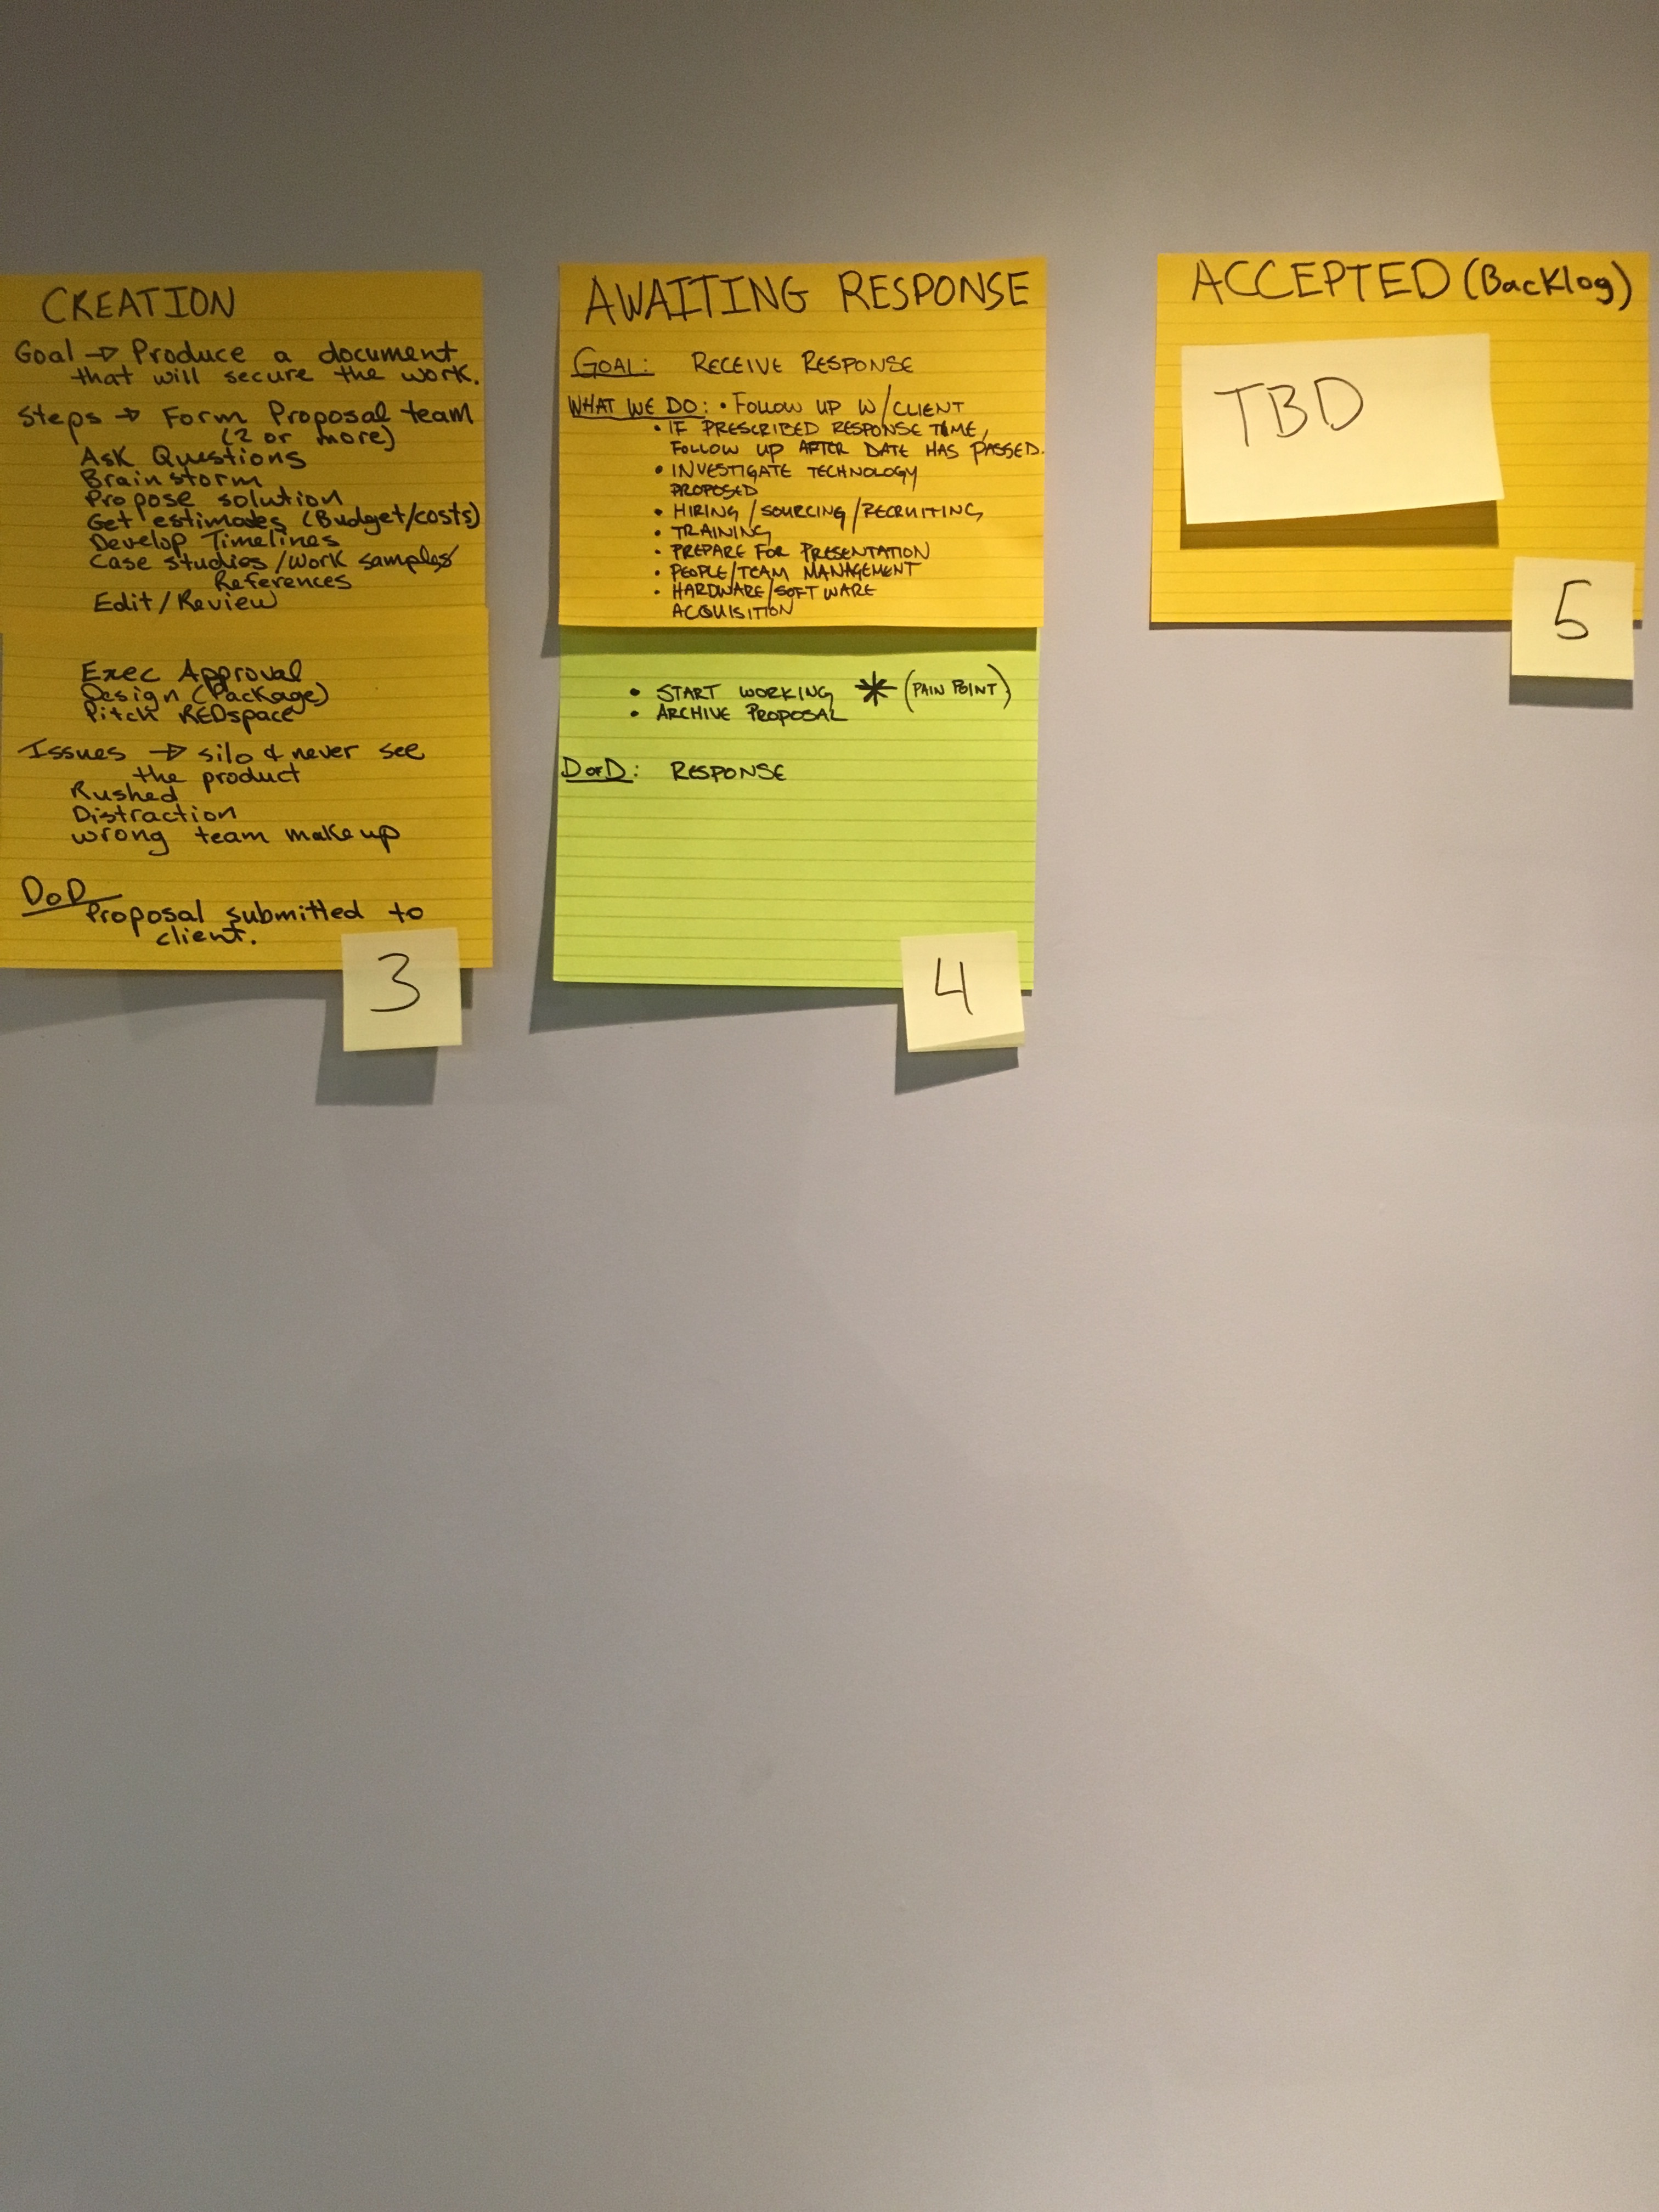 CREATION
Goal → Produce a document
that will secure the work.
Steps → Form Proposal team
(2 or more)
Ask Questions
Brainstorm
Propose solution
Get estimates (Budget/costs)
Develop Timelines
Case studies/work samples/
References
Edit/Review
Exec Approval
Design (Package)
Pitch REDspace
Issues → silo & never see
the product
Rushed
Distraction
wrong team makeup
DoD
Proposal submitted to
client.
3
AWAITING RESPONSE
GOAL: RECEIVE RESPONSE
WHAT WE DO: • FOLLOW UP W/CLIENT
• IF PRESCRIBED RESPONSE TIME,
FOLLOW UP AFTER DATE HAS PASSED.
• INVESTIGATE TECHNOLOGY
PROPOSED
• HIRING/SOURCING/RECRUITING
• TRAINING
• PREPARE FOR PRESENTATION
• PEOPLE/TEAM MANAGEMENT
• HARDWARE/SOFTWARE
ACQUISITION
• START WORKING * (PAIN POINT)
• ARCHIVE PROPOSAL
DofD: RESPONSE
4
ACCEPTED (Backlog)
TBD
5